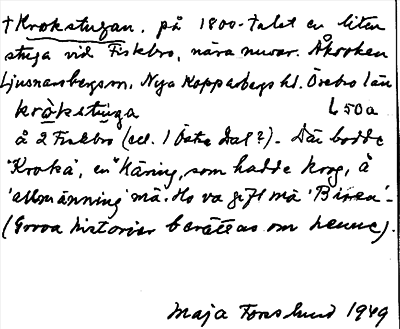 † Krokstugan, på 1800-talet en liten
stuga vid Fiskbro, nära nuvar. Åkroken
Ljusnarsbergs sn, Nya Kopparbergs hd. Örebro län
krökstuga L50a
å 2 Fiskbro (ell. 1 Öste dal?). Där bodde
'Kroka', en Käring, som hadde krog, å
'allmänning' må. Ho va gift må 'Birsen'.
(Grova historier berättas om henne).
Maja Forslund 1949